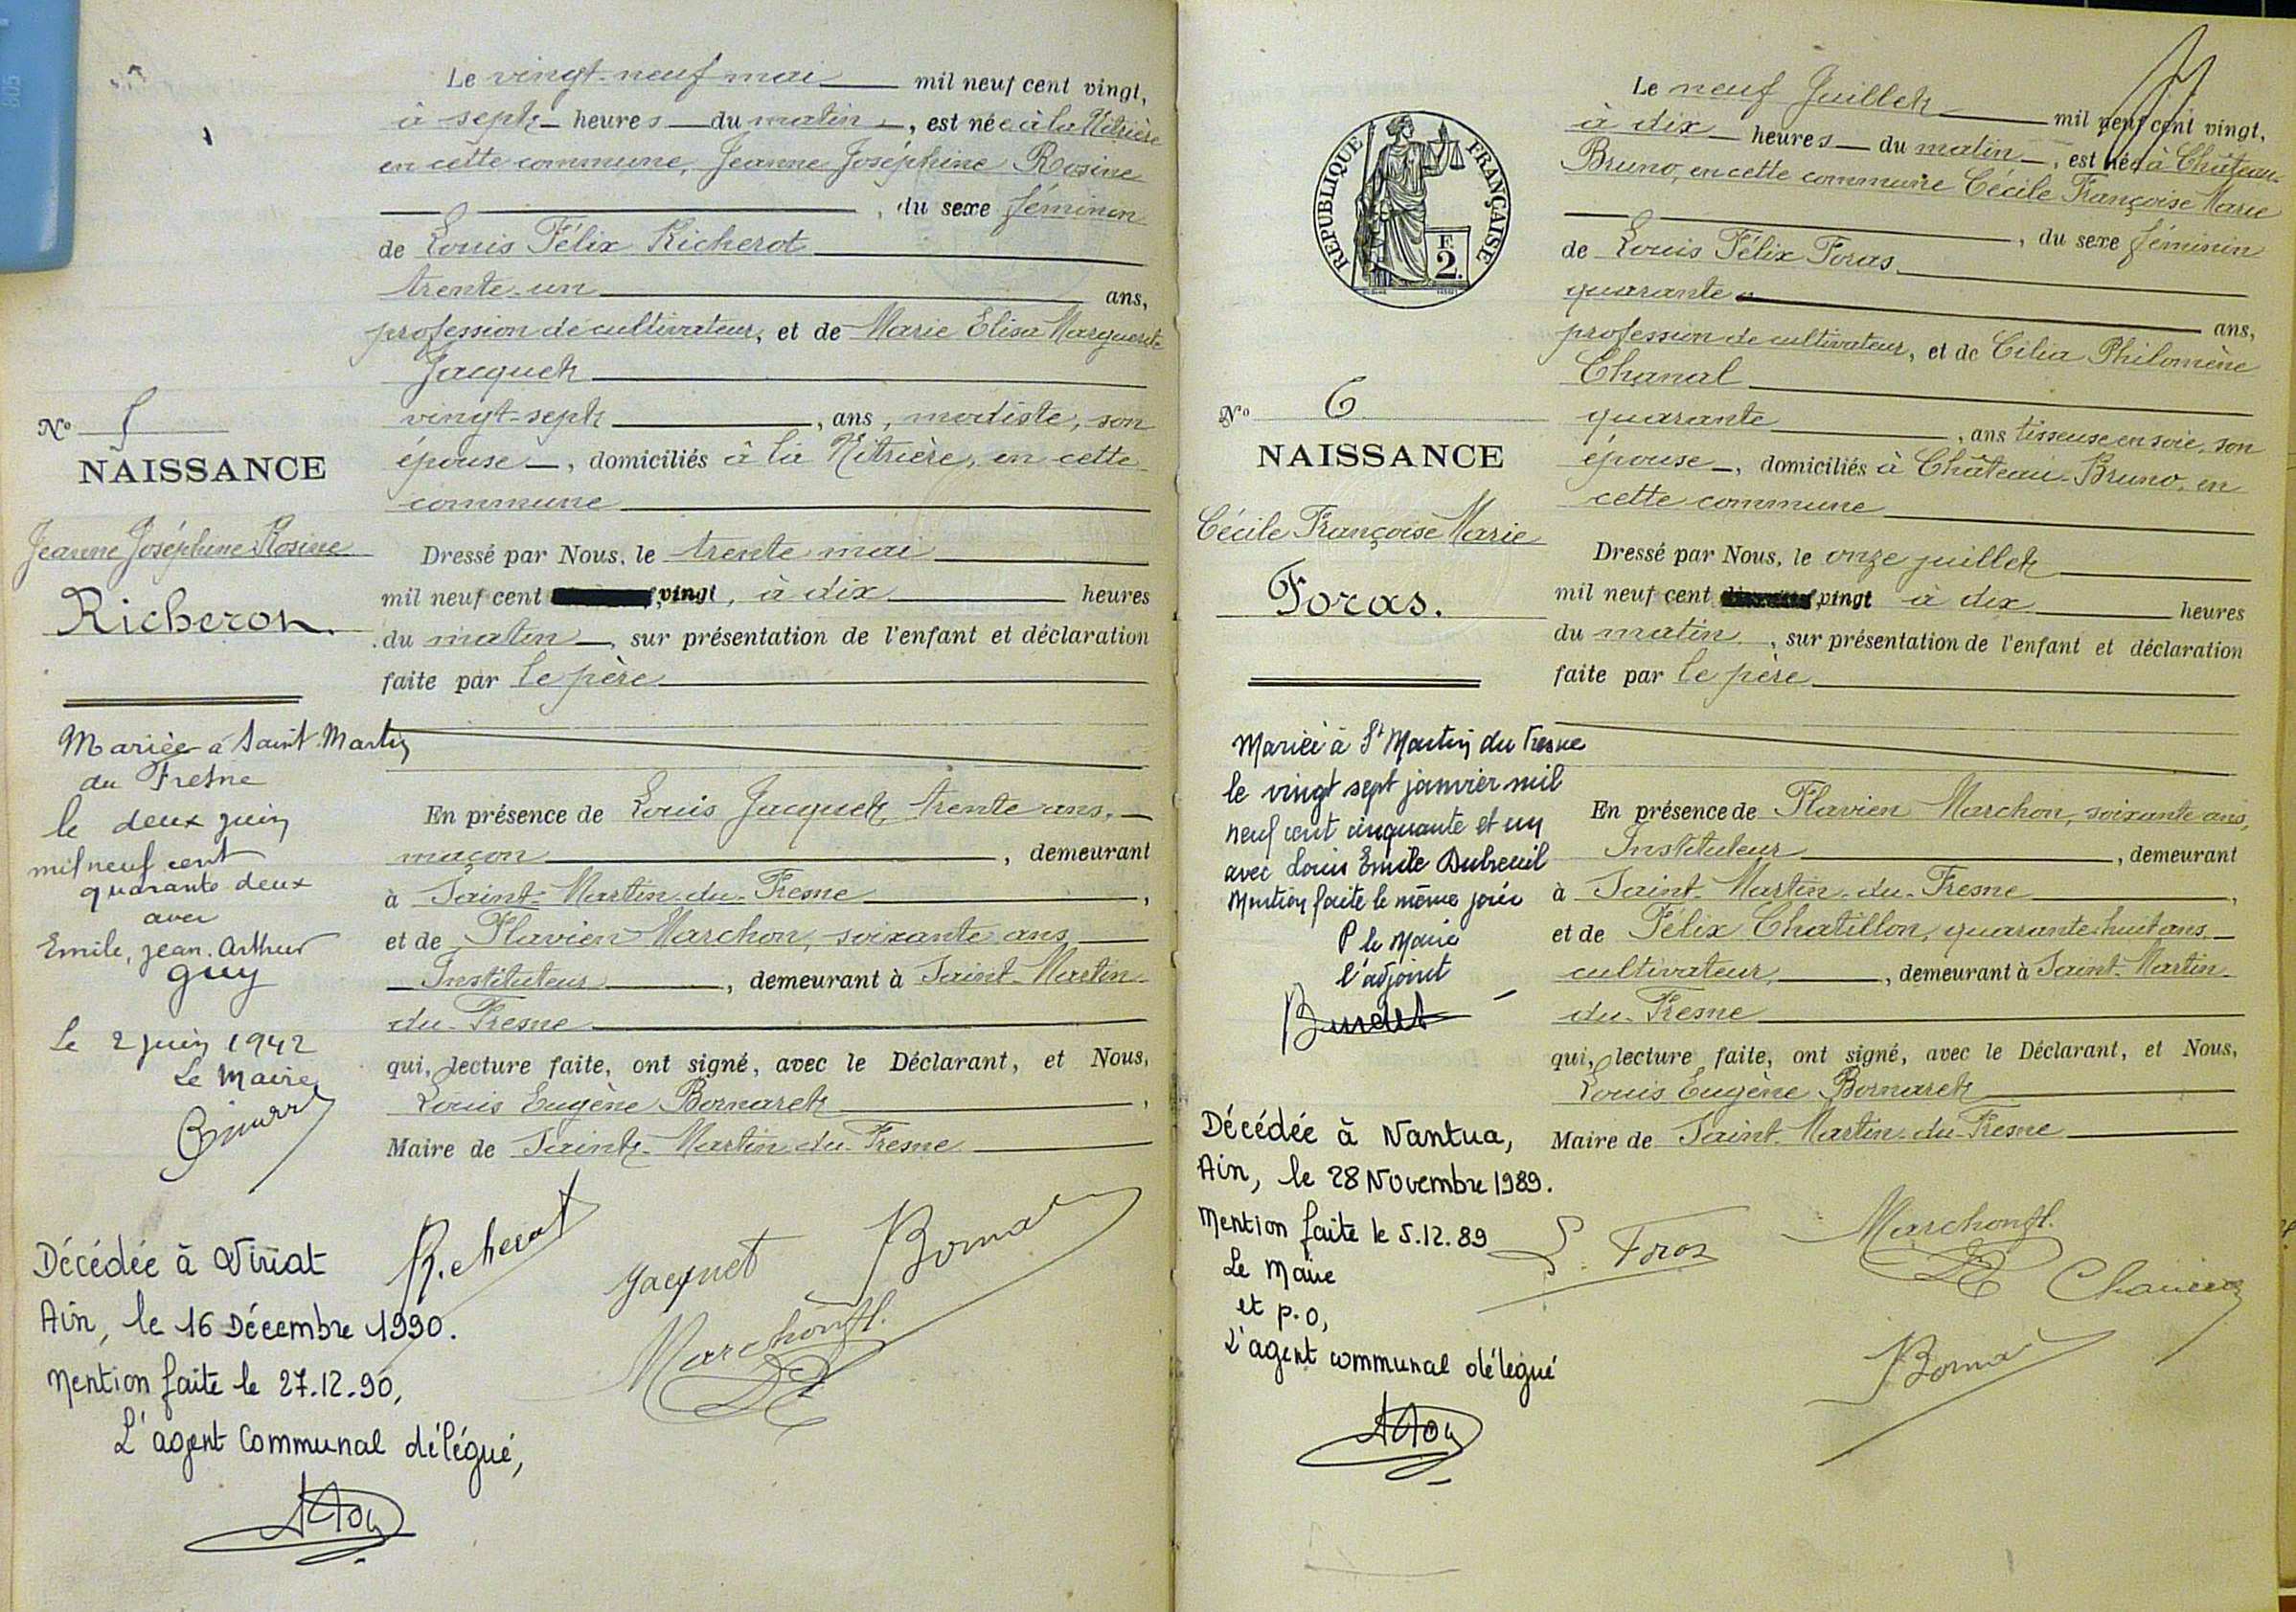 Le vingt-neuf mai mil neuf cent vingt,
à sept heures du matin, est née à la Nitrière
en cette commune, Jeanne Joséphine Rosine
, du sexe féminin
de Louis Félix Richerot
trente-un ans,
profession de cultivateur, et de Marie Elisa Marguerite
Jacquet
vingt-sept, ans, modiste, son
épouse, domiciliés à la Nitrière, en cette
commune
Dressé par Nous, le trente mai
mil neuf cent vingt, à dix heures
du matin, sur présentation de l'enfant et déclaration
faite par le père
En présence de Louis Jacquet, trente ans,
maçon, demeurant
à Saint-Martin-du-Fresne,
et de Flavien Marchon, soixante ans
Instituteur, demeurant à Saint-Martin-
du-Fresne
qui, lecture faite, ont signé, avec le Déclarant, et Nous,
Louis Eugène Bornarel,
Maire de Saint-Martin-du-Fresne
Richerot
Jacquet
Marchon fl.
N° 5
NAISSANCE
Jeanne Joséphine Rosine
Richerot.
Mariée à Saint-Martin
du Fresne
le deux juin
mil neuf cent
quarante deux
avec
Emile, Jean. Arthur
Guy
Le 2 juin 1942
Le Maire
Décédée à Viriat
Ain, le 16 Décembre 1990.
Mention faite le 27.12.90,
L'agent Communal délégué,
REPUBLIQUE FRANÇAISE
F.
2.
Le neuf Juillet mil neuf cent vingt,
à dix heures du matin, est née à Château-
Bruno, en cette commune Cécile Françoise Marie
, du sexe féminin
de Louis Félix Foras
quarante ans,
profession de cultivateur, et de Célia Philomène
Chanal
quarante, ans tisseuse en soie, son
épouse, domiciliés à Château-Bruno, en
cette commune
Dressé par Nous, le onze juillet
mil neuf cent vingt à dix heures
du matin, sur présentation de l'enfant et déclaration
faite par le père
En présence de Flavien Marchon, soixante ans,
Instituteur, demeurant
à Saint-Martin-du-Fresne,
et de Félix Chatillon, quarante-huit ans
cultivateur, demeurant à Saint-Martin-
du-Fresne
qui, lecture faite, ont signé, avec le Déclarant, et Nous,
Louis Eugène Bornarel
Maire de Saint-Martin-du-Fresne
Marchon fl.
N° 6
NAISSANCE
Cécile Françoise Marie
Foras.
Mariée à St Martin du Fresne
le vingt sept janvier mil
neuf cent cinquante et un
avec Louis Emile Dubreuil
Mention faite le même jour
P le Maire
l'adjoint
Décédée à Nantua,
Ain, le 28 Novembre 1989.
Mention faite le 5.12.89
Le Maire
et p.o,
L'agent communal délégué